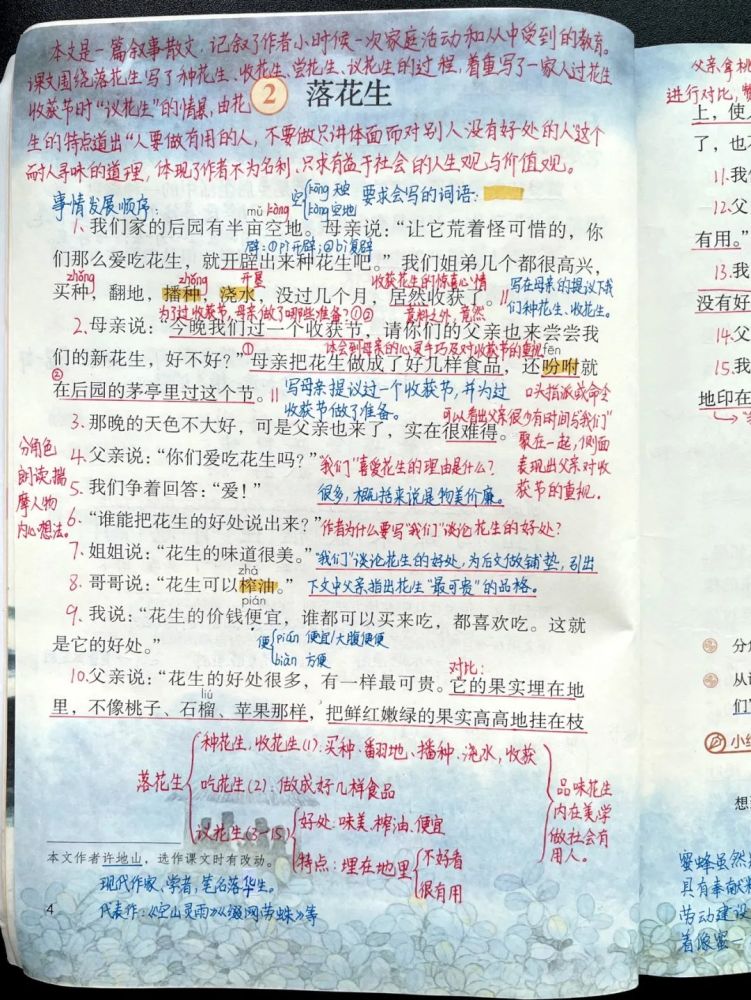 本文是一篇叙事散文,记叙了作者小时候一次家庭活动和从中受到的教育。
课文围绕落花生写了种花生、收花生、尝花生、议花生的过程,着重写了一家人过花生
收获节时“议花生”的情景,由花
2 落花生
生的特点道出“人要做有用的人,不要做只讲体面而对别人没有好处的人”这个
耐人寻味的道理,体现了作者不为名利、只求有益于社会的人生观与价值观。
事情发展顺序:
空 kōng 天空
kòng 空地
要求会写的词语:
mǔ kòng
1.我们家的后园有半亩空地。母亲说:“让它荒着怪可惜的,你
辟:①pì开辟;②bì复辟
们那么爱吃花生,就开辟出来种花生吧。”我们姐弟几个都很高兴,
zhǒng zhǒng 开垦
收获花生的惊喜心情
买种,翻地,播种,浇水,没过几个月,居然收获了。
写在母亲的提议下我
们种花生、收花生。
为了过收获节,母亲做了哪些准备?①②
意料之外,竟然
2.母亲说:“今晚我们过一个收获节,请你们的父亲也来尝尝我
① 体会到母亲的心灵手巧及对收获节的重视
fēn
们的新花生,好不好?”母亲把花生做成了好几样食品,还吩咐就
②
在后园的茅亭里过这个节。
写母亲提议过一个收获节,并为过
收获节做了准备。
口头指派或命令
3.那晚的天色不大好,可是父亲也来了,实在很难得。
可以看出父亲很少有时间与“我们”
聚在一起,侧面
表现出父亲对收
获节的重视.
分角色
朗读,揣
摩人物
内心想法。
4.父亲说:“你们爱吃花生吗?”
“我们”喜爱花生的理由是什么?
5.我们争着回答:“爱!”
很多,概括来说是物美价廉。
6.“谁能把花生的好处说出来?”
作者为什么要写“我们”谈论花生的好处?
7.姐姐说:“花生的味道很美。”
“我们”谈论花生的好处,为后文做铺垫,引出
zhà
8.哥哥说:“花生可以榨油。”
下文中父亲指出花生“最可贵”的品格。
pián
9.我说:“花生的价钱便宜,谁都可以买来吃,都喜欢吃。这就
是它的好处。”
便 pián 便宜/大腹便便
biàn 方便
对比:
10.父亲说:“花生的好处很多,有一样最可贵。它的果实埋在地
liú
里,不像桃子、石榴、苹果那样,把鲜红嫩绿的果实高高地挂在枝
落花生
种花生,收花生(1):买种、翻地、播种、浇水,收获
吃花生(2):做成好几样食品
议花生(3-15)
好处:味美.榨油.便宜
特点:埋在地里
不好看
很有用
品味花生
内在美,学
做社会有
用人。
本文作者许地山,选作课文时有改动。
现代作家,学者,笔名落华生。
代表作:《空山灵雨》《缀网劳蛛》等
4
父亲拿桃
进行对比,赞
上,使人
了,也不
11.我们
12.父
有用。”
13.我
没有好
14.父
15.我
地印在
分角
从课
们”
小练
想
蜜蜂虽然
具有奉献精
劳动建设
着像蜜一